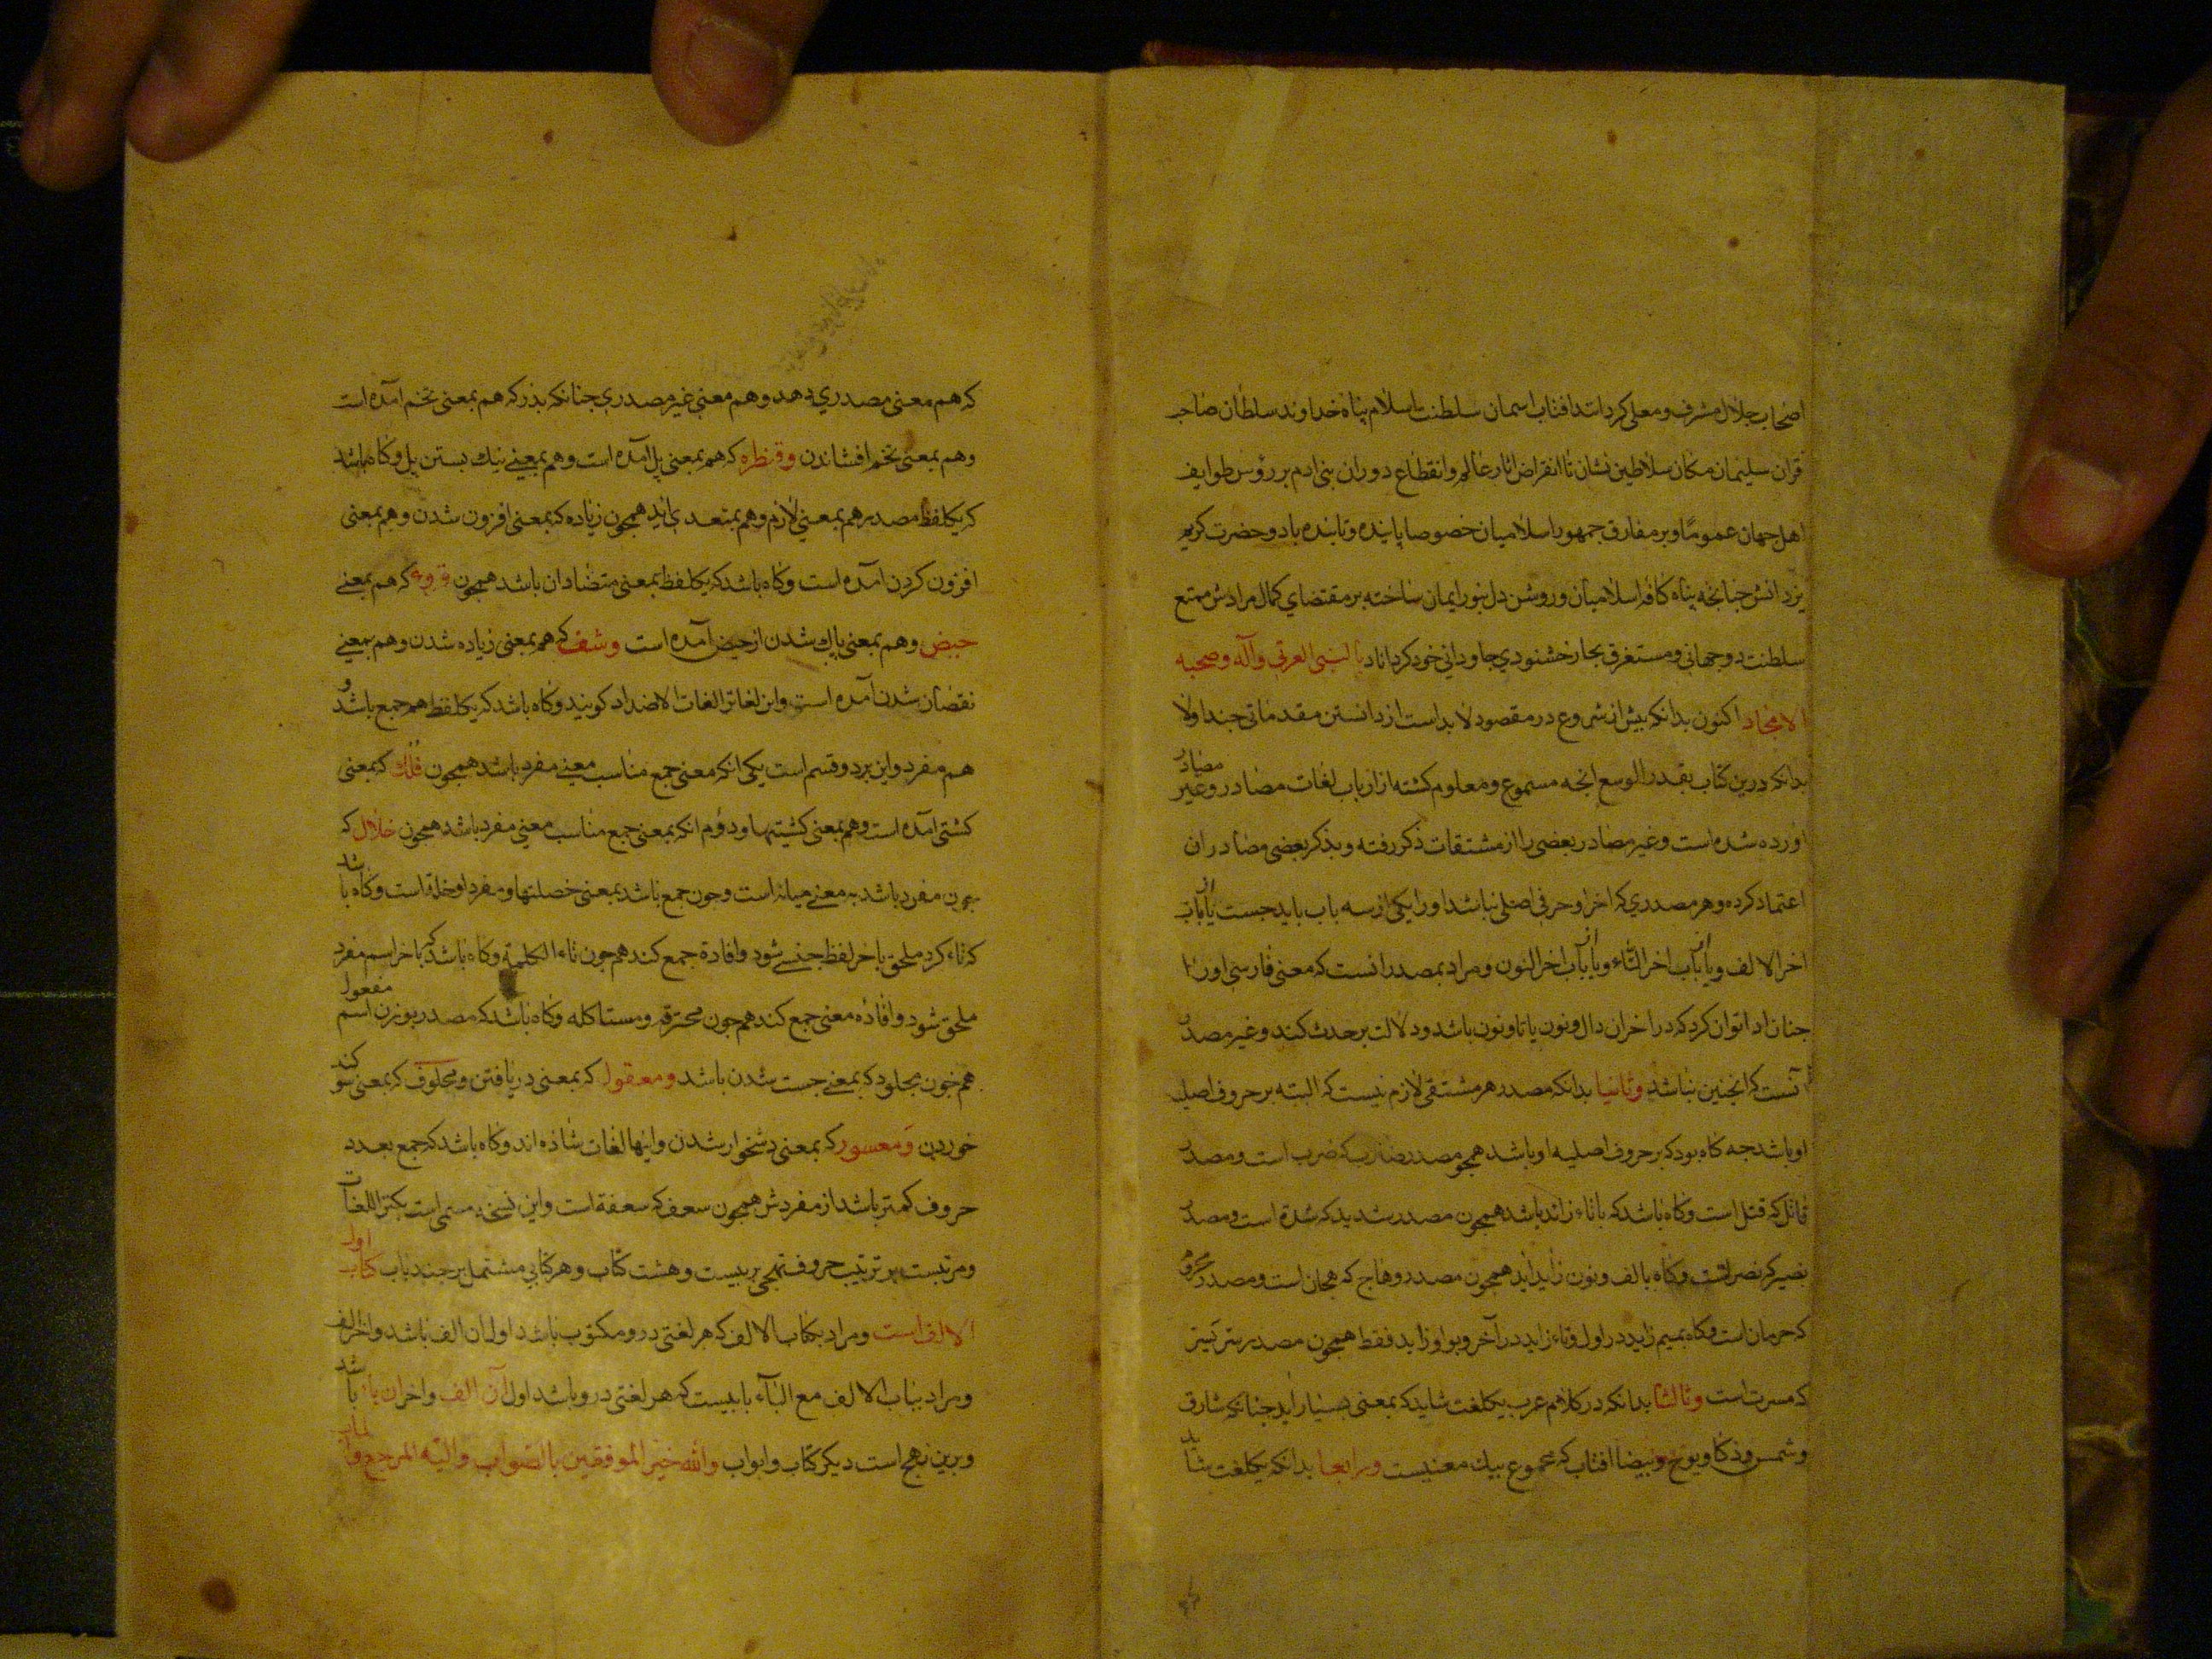 اصحاب جلال مشرف و معلی کرداند افتاب اسمان سلطنت اسلام پناه خداوند سلطان صاحب
قران سلیمان مکان سلاطین نشان تا انقراض اثار عالم و انقطاع دوران بنی ادم بر رؤس طوایف
اهل جهان عموماً و بر مفارق جمهور اسلامیان خصوصا پاینده و تابنده باد و حضرت کریم
جنانجه پناه کافه اسلامیان و روشن دل بنور ایمان ساخته بر مقتضای کمال مرادش ممتع
سلطنت دو جهانی و مستغرق بحار خشنودي جاودانی خود کرداناد بالنبی العربی وآله وصحبه
الامجاد اکنون بدانکه بیش از شروع در مقصود لابد است از دانستن مقدماتی جند اولا
بدانکه درین کتاب بقدر الوسع انجه مسموع و معلوم کشته از ارباب لغات مصادر و غیر مصادر
اورده شده است و غیر مصادر بعضی را از مشتقات ذکر رفته و بذکر بعضی مصادر ان
اعتماد کرده و هر مصدري که اخر او حرفی اصلی نباشد اورا یکی از سه باب باید جست یا از باب
اخر الالف و یا از باب اخر التاء و یا از باب اخر النون و مراد بمصدر انست که معنی فارسی اورا
جنان ادا توان کرد که در اخر ان دال و نون یا تا و نون باشد و دلالت بر حدث کند و غیر مصدر
آنست که انجنین نباشد وثانیا بدانکه مصدر هر مشتقی لازم نیست که البته بر حروف اصلیه
او باشد جه کاه بود که بر حروف اصلیه او باشد همجو مصدر ضارب که ضرب است و مصدر
قاتل که قتل است و کاه باشد که با تاء زائد باشد همجون مصدر شدید که شدة است و مصدر
نصیر که نصرانست و کاه با الف و نون زاید اید همجون مصدر و هاج که هجان است و مصدر محروم
که حرمان است و کاه بمیم زاید در اول و تاء زاید در آخر و بواو زاید فقط همجون مصدر
که مسرت است وثالثا بدانکه در کلام عرب یکلغت شاید که بمعنی بسیار اید جنانکه شارق
و شمس و ذکا و یوح و بیضا افتاب که مجموع بیك معنیست ورابعا بدانکه یکلغت شاید
که هم معنی مصدري دهد و هم معنی غیر مصدري جنانکه بذر که هم بمعنی تخم آمده است
و هم بمعنی تخم افشاندن وقنطره که هم بمعنی پل امده است و هم بمعنی نیك بستن پل و کاه باشد
که یکلفظ مصدر هم بمعنی لازم و هم بمتعدي اید همجون زیاده که بمعنی افزون شدن و هم بمعنی
افزون کردن امده است و کاه باشد که یکلفظ بمعنی متضادان باشد همجون قروء که هم بمعنی
حیض و هم بمعنی پاك شدن از حیض آمده است وشف که هم بمعنی زیاده شدن و هم بمعنی
نقصان شدن آمده است و این لغات را لغات الاضداد کویند و کاه باشد که یکلفظ هم جمع باشد و
هم مفرد و این بر دو قسم است یکی انکه معنی جمع مناسب معنی مفرد باشد همجون فلك که بمعنی
کشتی امده است و هم بمعنی کشتیها و دؤم انکه بمعنی جمع مناسب معنی مفرد باشد همجون خلال که
جون مفرد باشد به معنی میانه است و جون جمع باشد بمعنی خصلتها و مفرد او خلة است و کاه باشد
که تاء کرد ملحق باخر لفظ جنسی شود و افادة جمع کند همجون تاء الکلمة و کاه باشد که باخر اسم مفرد
ملحق شود و افاده معنی جمع کند همجون محترقه و مستاکله و کاه باشد که مصدر بوزن اسم مفعول
همجون مجلود که بمعنی جست شدن باشد ومعقول که بمعنی دریافتن و محلوف که بمعنی سوکند
خوردن ومعسور که بمعنی دشخوار شدن و اینها لغات شاذه اند و کاه باشد که جمع بعدد
حروف کمتر باشد از مفردش همجون سعف که سعفة است و این نسخه مسمی است بکنز اللغات
و مرتبست بر ترتیب حروف تهجی بر بیست و هشت کتاب و هر کتابی مشتمل بر جند باب کتاب اول
الالف است و مراد بکتاب الالف که هر لغتی درو مکتوب باشد اول ان الف باشد و اخر الف
و مراد بباب الالف مع الباء بابیست که هر لغتی درو باشد اول آن الف و اخر ان با باشد
و برین نهج است دیکر کتاب و ابواب والله خیر الموفقین بالصواب والیه المرجع والماب